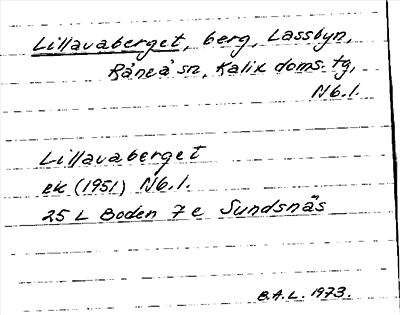 Lillavaberget, berg, Lassbyn,
Råneå sn, Kalix doms. tg,
Nb.l.
Lillavaberget
ek (1951) Nb.l.
25 L Boden 7 e Sundsnäs
B.A.L. 1973.